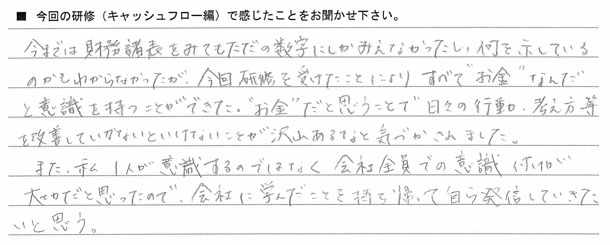 ■ 今回の研修（キャッシュフロー編）で感じたことをお聞かせ下さい。
今までは財務諸表をみてもただの数字にしかみえなかったし、何を示している
のかもわからなかったが、今回研修を受けたことにより すべて"お金"なんだ
と意識を持つことができた。"お金"だと思うことで日々の行動、考え方等
を改善していかないといけないことが沢山あるなと気づかされました。
また、私1人が意識するのではなく 会社全員での意識 付けが
大切だと思ったので、会社に学んだことを持ち帰って自ら発信していきた
いと思う。